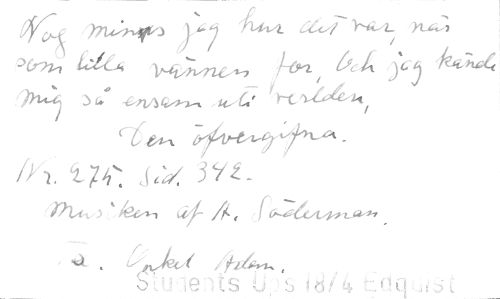 Nog minns jag hur det var, när
som lilla vännen for, Och jag kände
mig så ensam uti verlden,
Den öfvergifna.
Nr. 275. Sid. 342.
Musiken af A. Söderman.
Onkel Adam.
Students Ups 18/4 Edquist